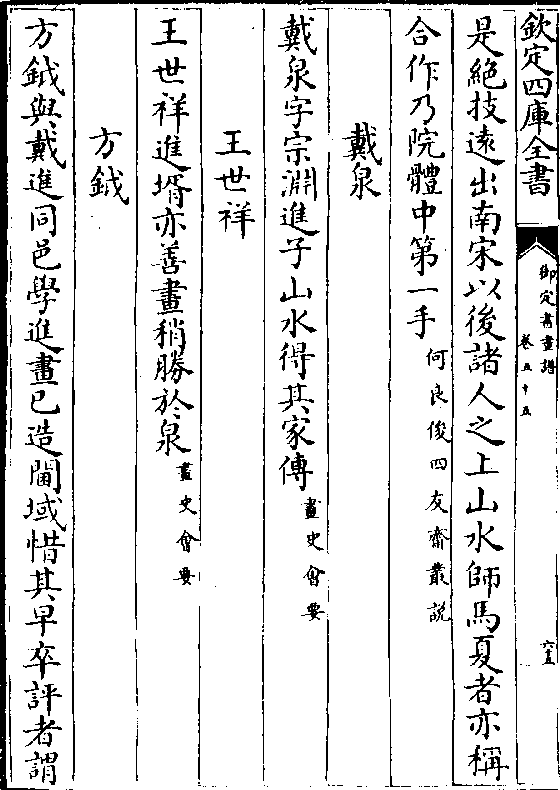 欽定四庫全書
御定書畫譜
卷五十五
六十五
是絕技遠出南宋以後諸人之上山水師馬夏者亦稱
合作乃院體中第一手何良俊四友齋叢說
戴泉
戴泉字宗淵進子山水得其家傳畫史會要
王世祥
王世祥進壻亦善畫稍勝於泉畫史會要
方鉞
方鉞與戴進同邑學進畫已造閫域惜其早卒評者謂